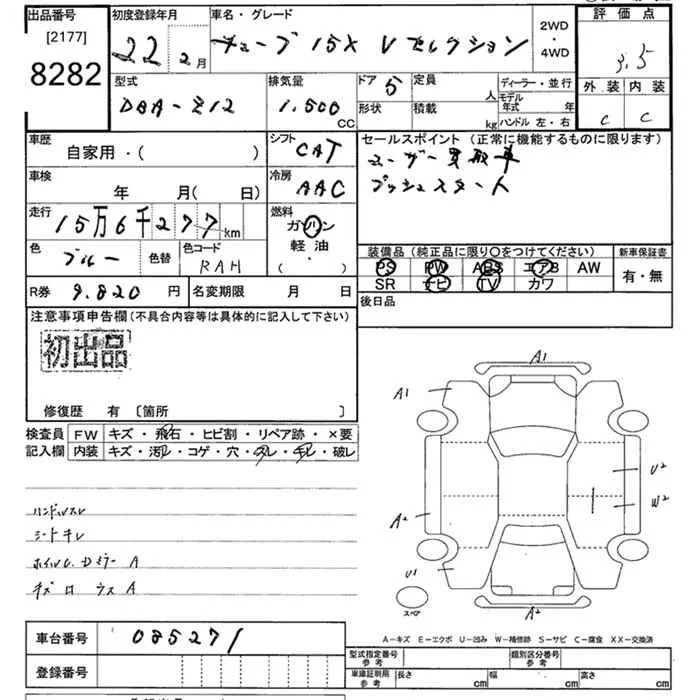 出品番号 初度登録年月 車名・グレード 2WD・4WD 評価点
[2177]
8282
22 2月 キューブ 15X Vセレクション 3.5
型式 排気量 ドア 5 定員 人 ディーラー・並行 外装 内装
DBA-Z12 1.500 CC 形状 積載 kg モデル年式 年 ハンドル左・右 C C
車歴 自家用・( ) シフト CAT セールスポイント (正常に機能するものに限ります)
ユーザー買取車
プッシュスタート
車検 年 月(日) 冷房 AAC
走行 15万6千277km 燃料 ガソリン 軽油 ・( )
色 ブルー 色替 色コード RAH
装備品 (純正品に限り○をつけてください) 新車保証書
PS PW ABS エアB AW 有・無
SR ナビ TV カワ
R券 9.820 円 名変期限 月 日 後日品
注意事項申告欄(不具合内容等は具体的に記入して下さい)
初出品
修復歴 有 〔箇所 〕
検査員 FW キズ・飛石・ヒビ割・リペア跡・×要
記入欄 内装 キズ・汚レ・コゲ・穴・スレ・キレ・破レ
ハンドルスレ
シートキレ
A
A
A1
A1
U2
W2
A2
U1
スペア
A2
A-キズ E-エクボ U-凹み W-補修跡 S-サビ C-腐食 XX-交換済
車台番号 085271
登録番号
型式指定番号 参考 類別区分番号 参考
車庫証明用 参考 長さ cm 幅 cm 高さ cm